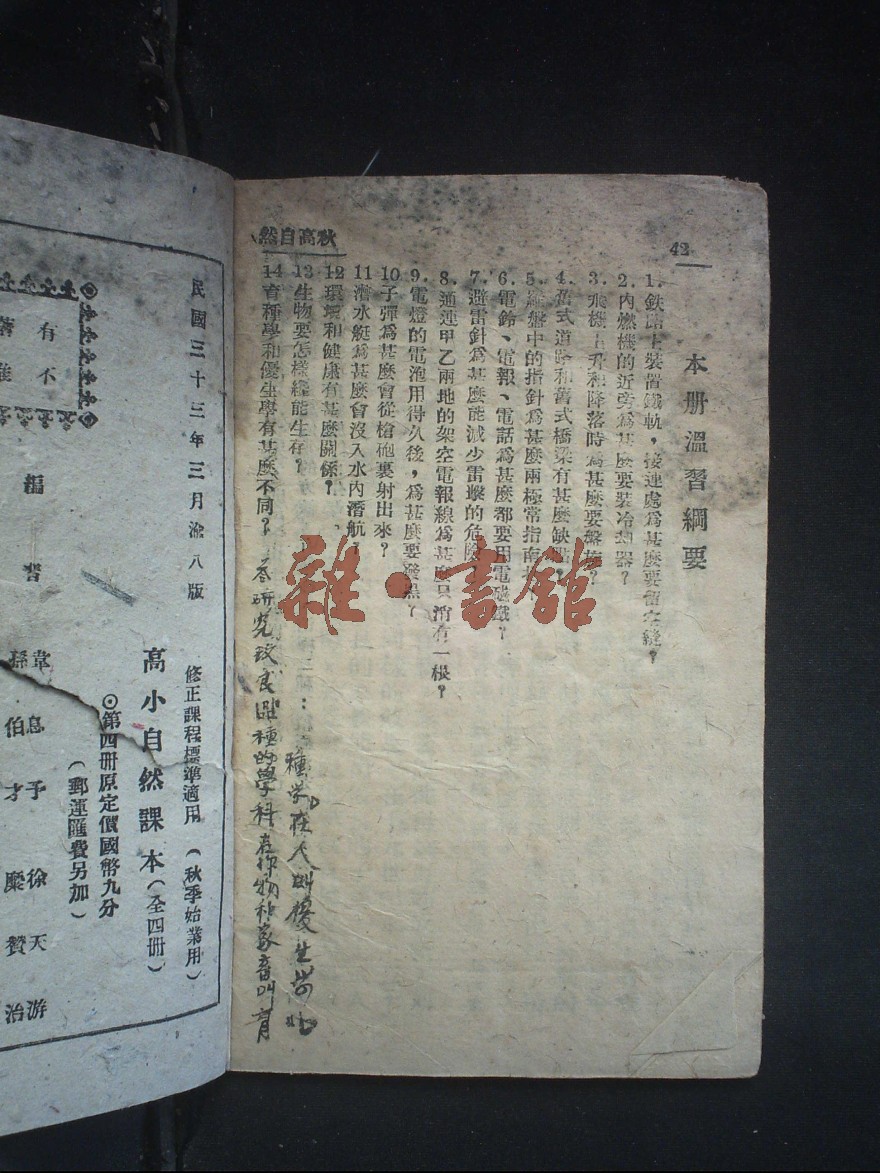 42
秋高自然
本册溫習綱要
1. 鉄路上裝置鐵軌，接連處爲甚麼要留空縫？
2. 內燃機的近旁爲甚麼要裝冷却器？
3. 飛機上升和降落時爲甚麼要盤旋？
4. 舊式道路和舊式橋梁有甚麼缺點？
5. 羅盤中的指針爲甚麼兩極常指南
6. 電鈴、電報、電話爲甚麼都要用電磁鐵？
7. 避雷針爲甚麼能減少雷擊的危
8. 通連甲乙兩地的架空電報線爲甚麼只消有一根？
9. 電燈的電泡用得久後，爲甚麼要發黑？
10 子彈爲甚麼會從槍砲裏射出來？
11 潛水艇爲甚麼會沒入水內潛航？
12 環境和健康有甚麼關係？
13 生物要怎樣纔能生存？
14 育種學和優生學有甚麼不同？
研究改良品種的學科在作物和家畜叫育
種学在人叫優生学
雜·書館
民國三十三年三月渝八版
修正課程標準適用（秋季始業用）
高小自然課本（全四册）
⊙第四册原定價國幣九分
（郵運匯費另加）
有不
著准
編著
韋息予 徐天游
孫伯才 糜贊治